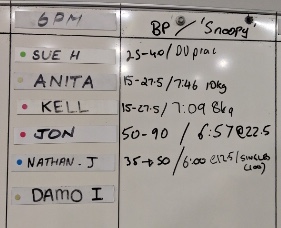 6PM BP / 'Snoopy'
SUE H 25-40/
ANITA 15-27.5/7:46 10kg
KELL 15-27.5/7:09 8kg
JON 50-90 / 6:57@22.5
NATHAN.J 35→50/6:00 @12.5/SINGLES (100)
DAMO I